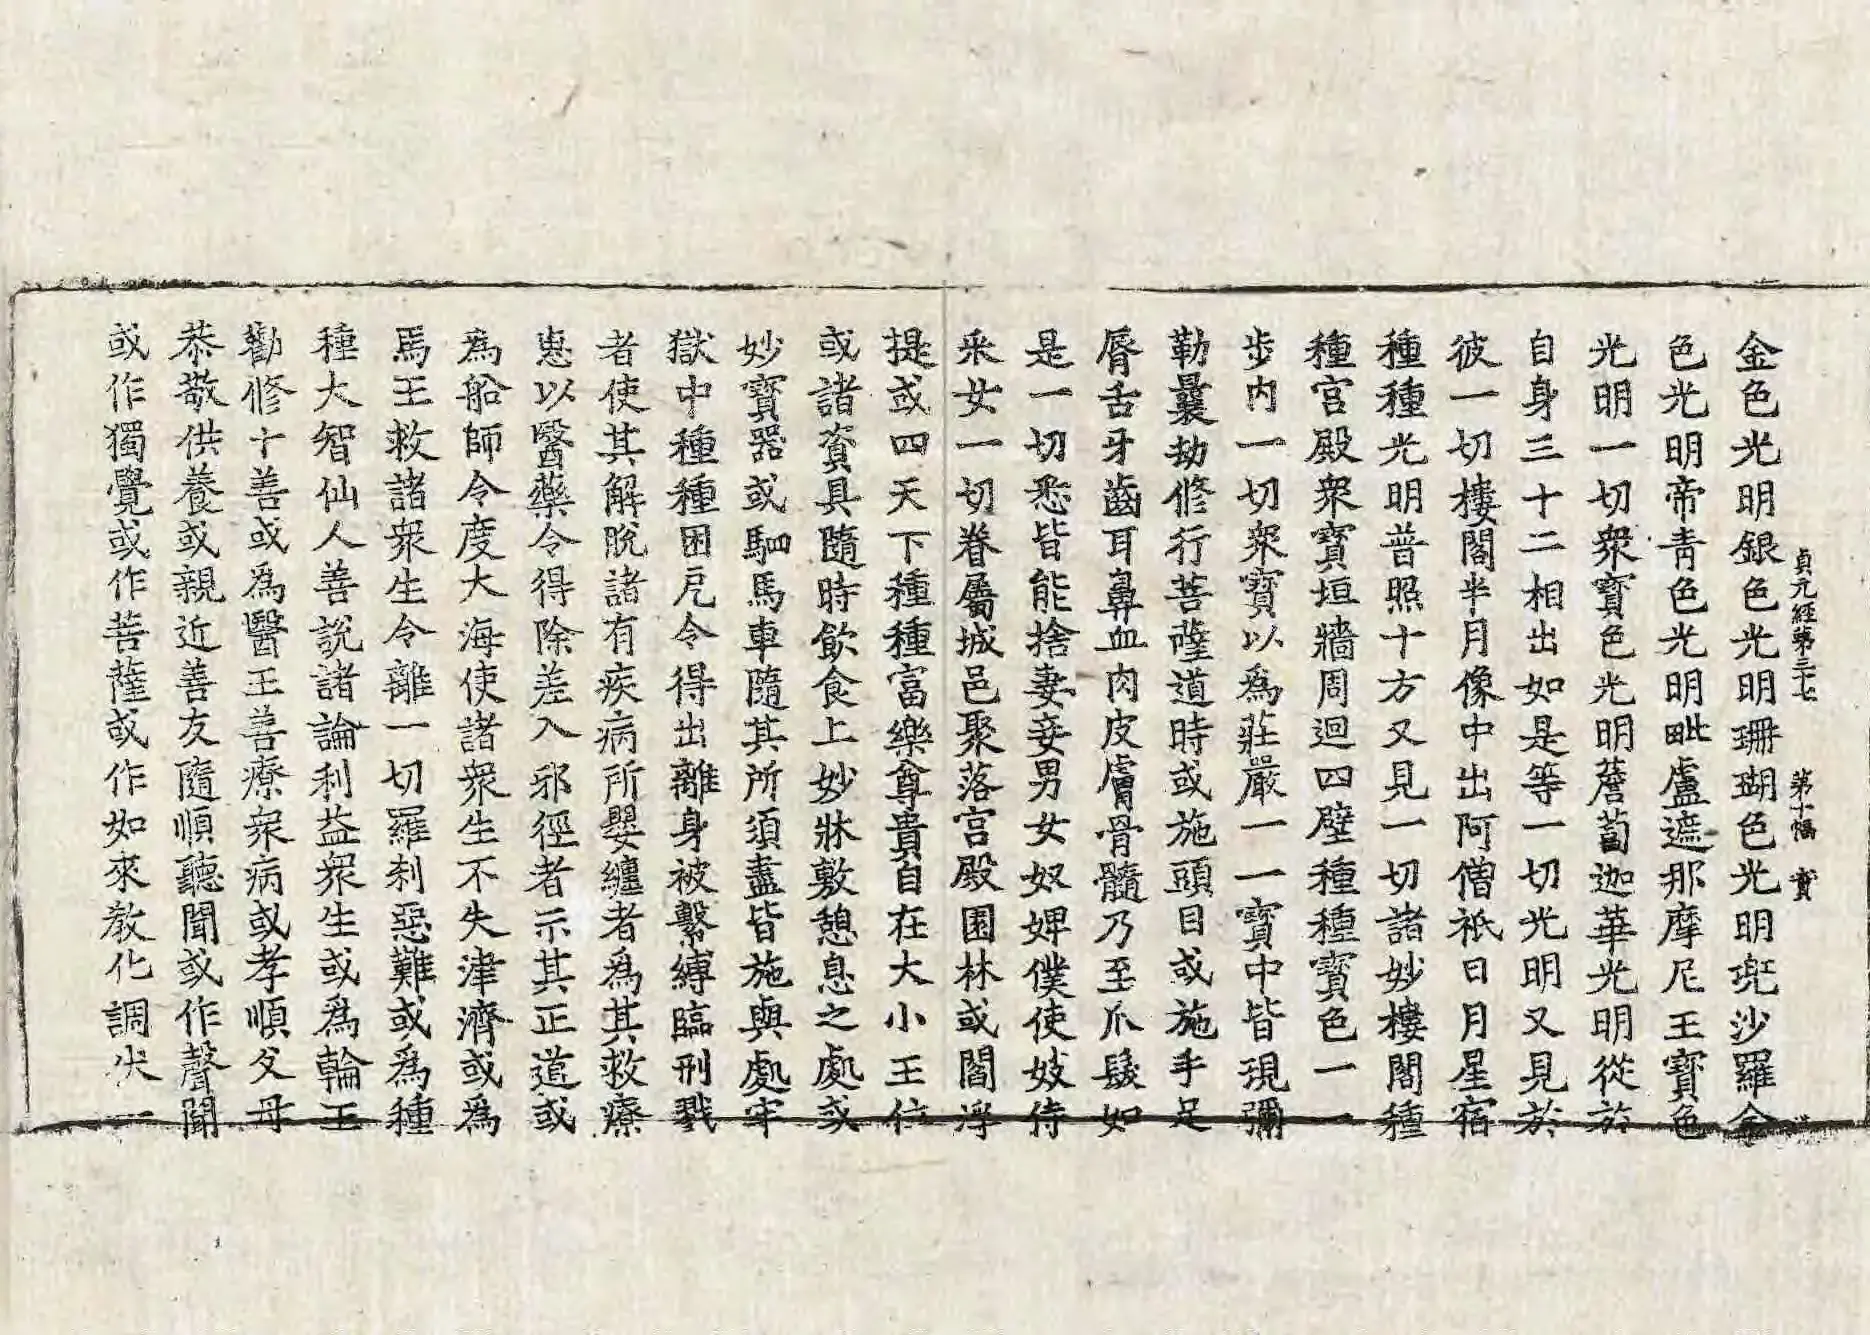 貞元經第三十七 第十幅 寶
金色光明銀色光明珊瑚色光明兠沙羅金
色光明帝青色光明毗盧遮那摩尼王寶色
光明一切衆寶色光明薝蔔迦華光明從於
自身三十二相出如是等一切光明又見於
彼一切樓閣半月像中出阿僧祇日月星宿
種種光明普照十方又見一切諸妙樓閣種
種宮殿衆寶垣牆周迴四壁種種寶色一一
步内一切衆寶以爲莊嚴一一寶中皆現彌
勒曩劫修行菩薩道時或施頭目或施手足
脣舌牙齒耳鼻血肉皮膚骨髓乃至爪髮如
是一切悉皆能捨妻妾男女奴婢僕使妓侍
采女一切眷屬城邑聚落宮殿園林或閻浮
提或四天下種種富樂尊貴自在大小王位
或諸資具隨時飲食上妙牀敷憩息之處或
妙寶器或駟馬車隨其所須盡皆施與處牢
獄中種種困厄令得出離身被繫縛臨刑戮
者使其解脫諸有疾病所嬰纏者爲其救療
惠以醫藥令得除差入邪徑者示其正道或
為船師令度大海使諸衆生不失津濟或爲
馬王救諸衆生令離一切羅刹惡難或爲種
種大智仙人善說諸論利益衆生或爲輪王
勸修十善或爲醫王善療衆病或孝順父母
恭敬供養或親近善友隨順聽聞或作聲聞
或作獨覺或作菩薩或作如來教化調伏一